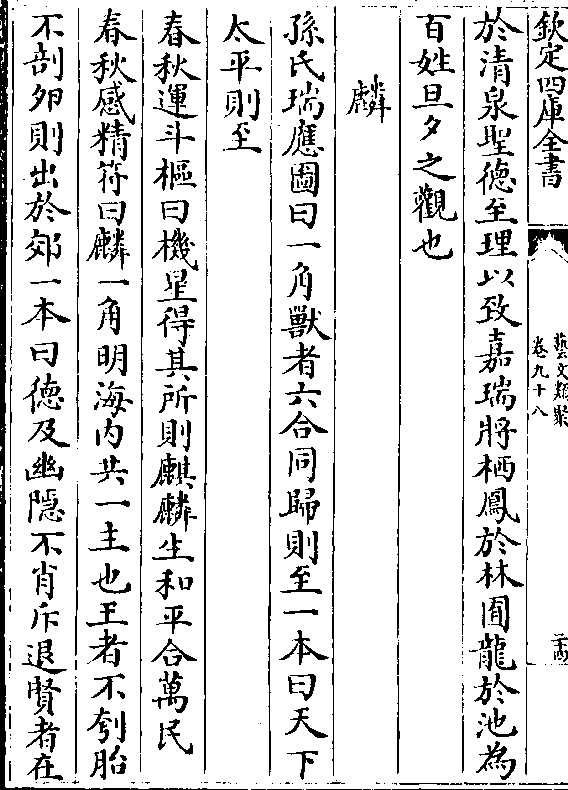 欽定四庫全書
藝文類聚
卷九十八
二十四
於清泉聖德至理以致嘉瑞將栖鳳於林囿龍於池為
百姓旦夕之觀也
麟
孫氏瑞應圖曰一角獸者六合同歸則至一本曰天下
太平則至
春秋運斗樞曰機星得其所則麒麟生和平合萬民
春秋感精符曰麟一角明海内共一主也王者不刳胎
不剖夘則出於郊一本曰德及幽隱不肖斥退賢者在